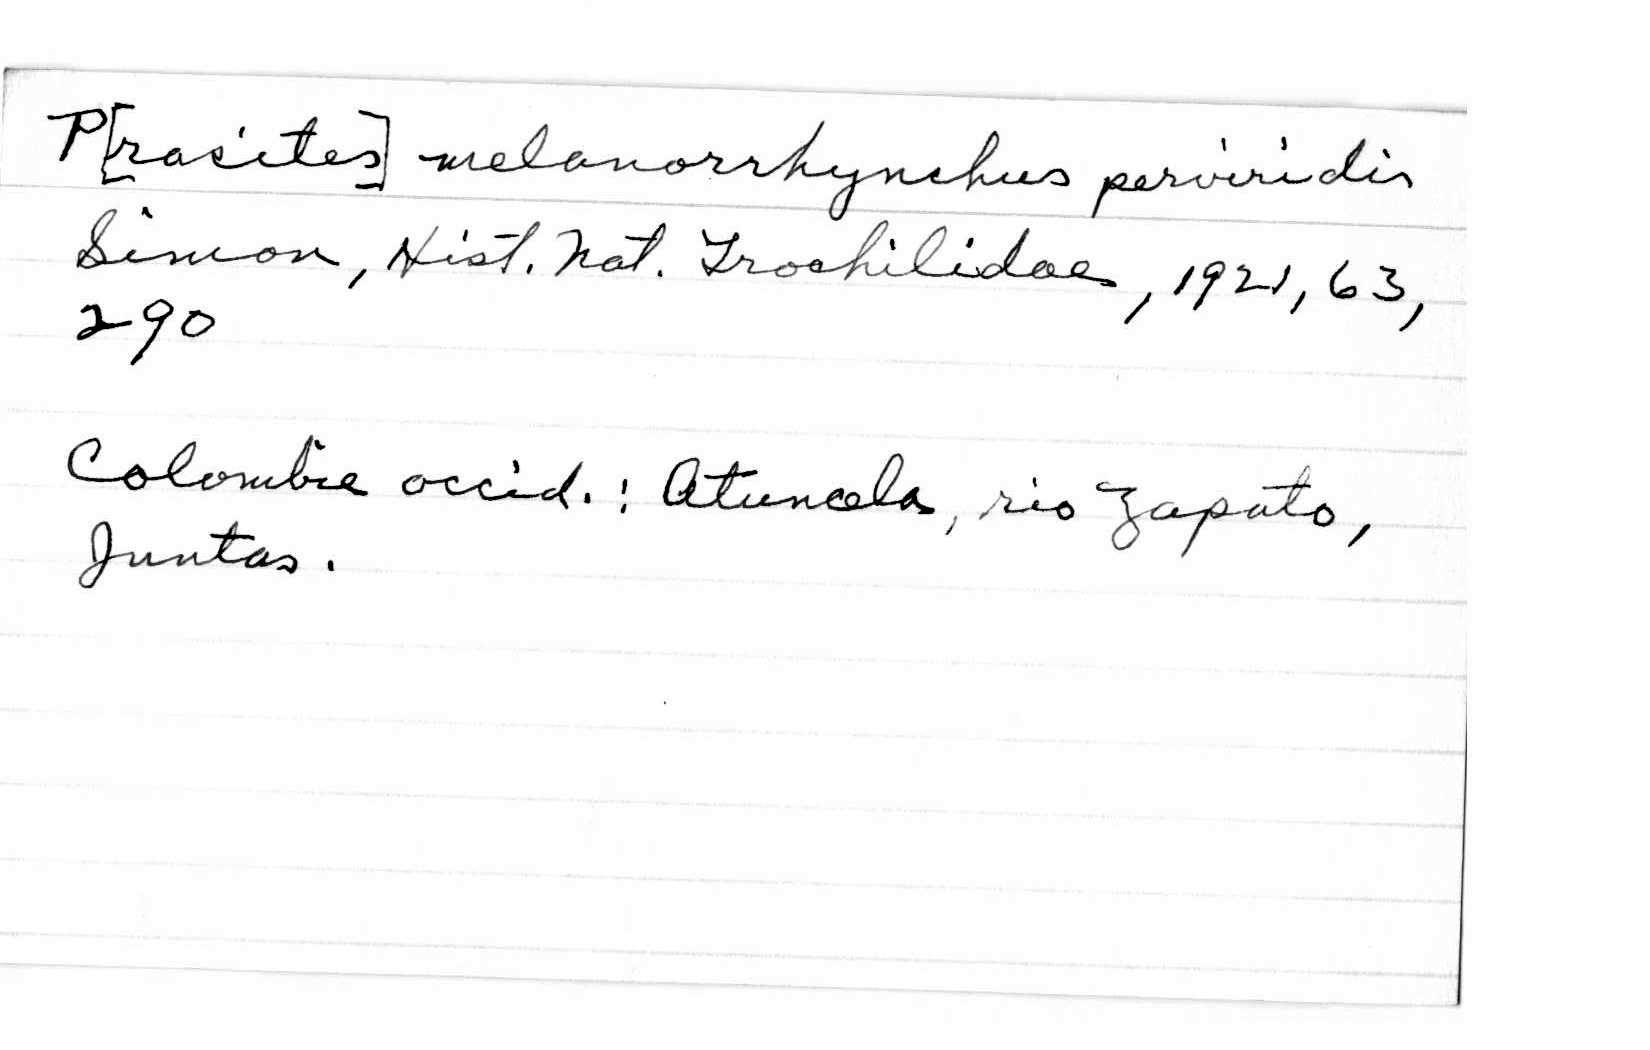 P[rasites] melanorrhynchus perviridis
Simon, Hist. Nat. Trochilidae, 1921, 63,
290
Colombie occid.: Atuncela, rio Zapato,
Juntas.